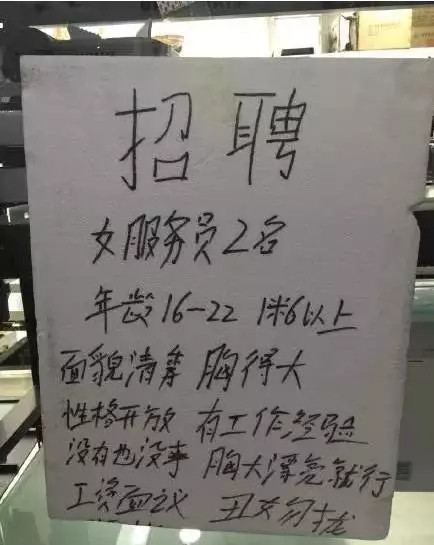 招聘
女服务员2名
年龄16-22 1米6以上
面貌清秀 胸得大
性格开放 有工作经验
没有也没事 胸大漂亮就行
工资面议 丑女勿扰